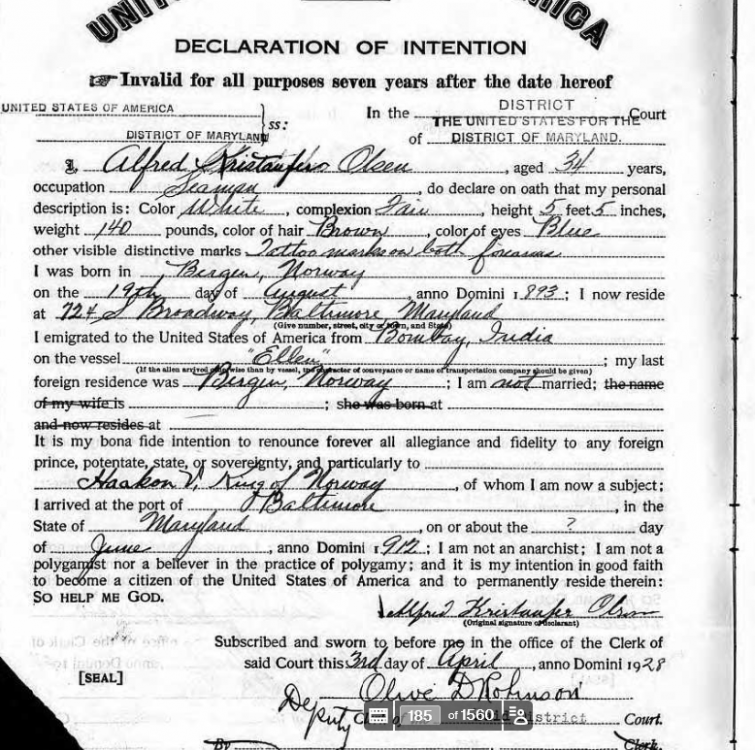 DECLARATION OF INTENTION
☞ Invalid for all purposes seven years after the date hereof
UNITED STATES OF AMERICA
DISTRICT OF MARYLAND
ss:
In the DISTRICT Court
of THE UNITED STATES FOR THE DISTRICT OF MARYLAND.
I, Alfred Kristaufero Olsen, aged 34 years,
occupation Seaman, do declare on oath that my personal
description is: Color White, complexion Fair, height 5 feet 5 inches,
weight 140 pounds, color of hair Brown, color of eyes Blue
other visible distinctive marks Tattoo marks on both forearms
I was born in Bergen, Norway
on the 19th day of August, anno Domini 1893; I now reside
at 724 S Broadway, Baltimore, Maryland
(Give number, street, city or town, and State)
I emigrated to the United States of America from Bombay, India
on the vessel "Ellen"; my last
(If the alien arrived otherwise than by vessel, the character of conveyance or name of transportation company should be given)
foreign residence was Bergen, Norway; I am not married; the name
of my wife is ; she was born at
and now resides at
It is my bona fide intention to renounce forever all allegiance and fidelity to any foreign
prince, potentate, state, or sovereignty, and particularly to
Haakon V, King of Norway, of whom I am now a subject;
I arrived at the port of Baltimore, in the
State of Maryland, on or about the ? day
of June, anno Domini 1912; I am not an anarchist; I am not a
polygamist nor a believer in the practice of polygamy; and it is my intention in good faith
to become a citizen of the United States of America and to permanently reside therein:
SO HELP ME GOD.
Alfred Kristaufer Olsen
(Original signature of declarant)
Subscribed and sworn to before me in the office of the Clerk of
said Court this 3rd day of April, anno Domini 1928
[SEAL]
Olive D Robinson
Deputy District Court.
185 of 1560
By Clerk.